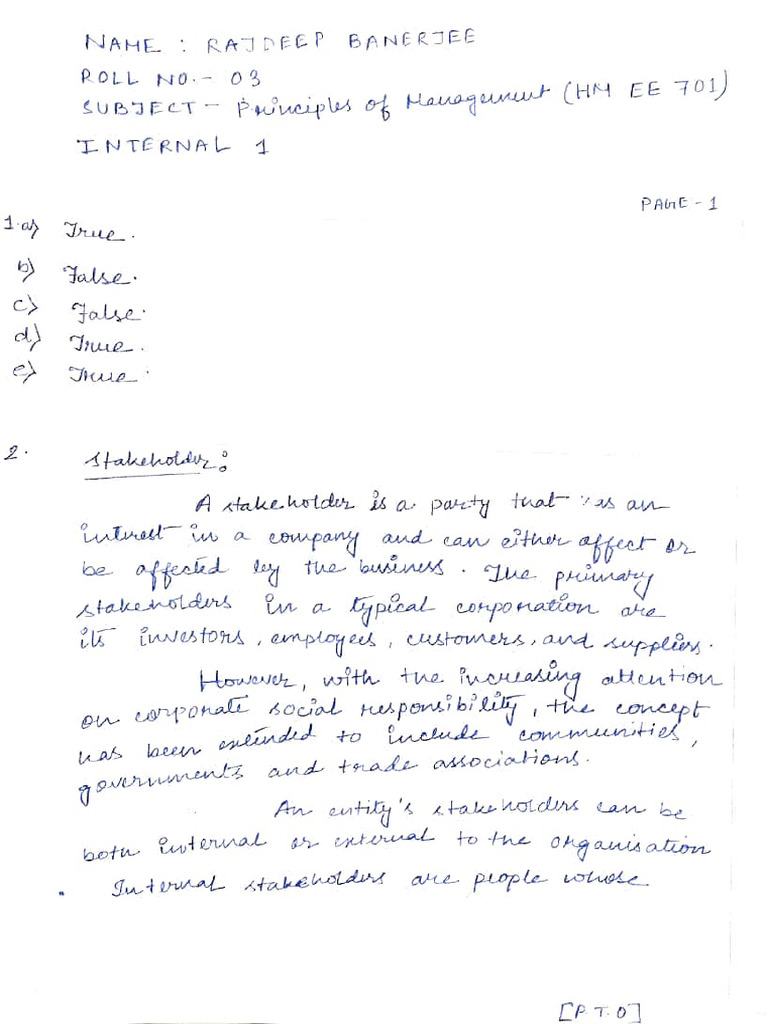 NAME : RAJDEEP BANERJEE
ROLL NO.- 03
SUBJECT - Principles of Management (HM EE 701)
INTERNAL 1
PAGE - 1
1.a) True.
b) False.
c) False.
d) True.
e) True.
2. Stakeholder:
A stakeholder is a party that has an
interest in a company and can either affect or
be affected by the business. The primary
stakeholders in a typical corporation are
its investors, employees, customers, and suppliers.
However, with the increasing attention
on corporate social responsibility, the concept
has been extended to include communities,
governments and trade associations.
An entity's stakeholders can be
both internal or external to the organisation
. Internal stakeholders are people whose
[P.T.O]